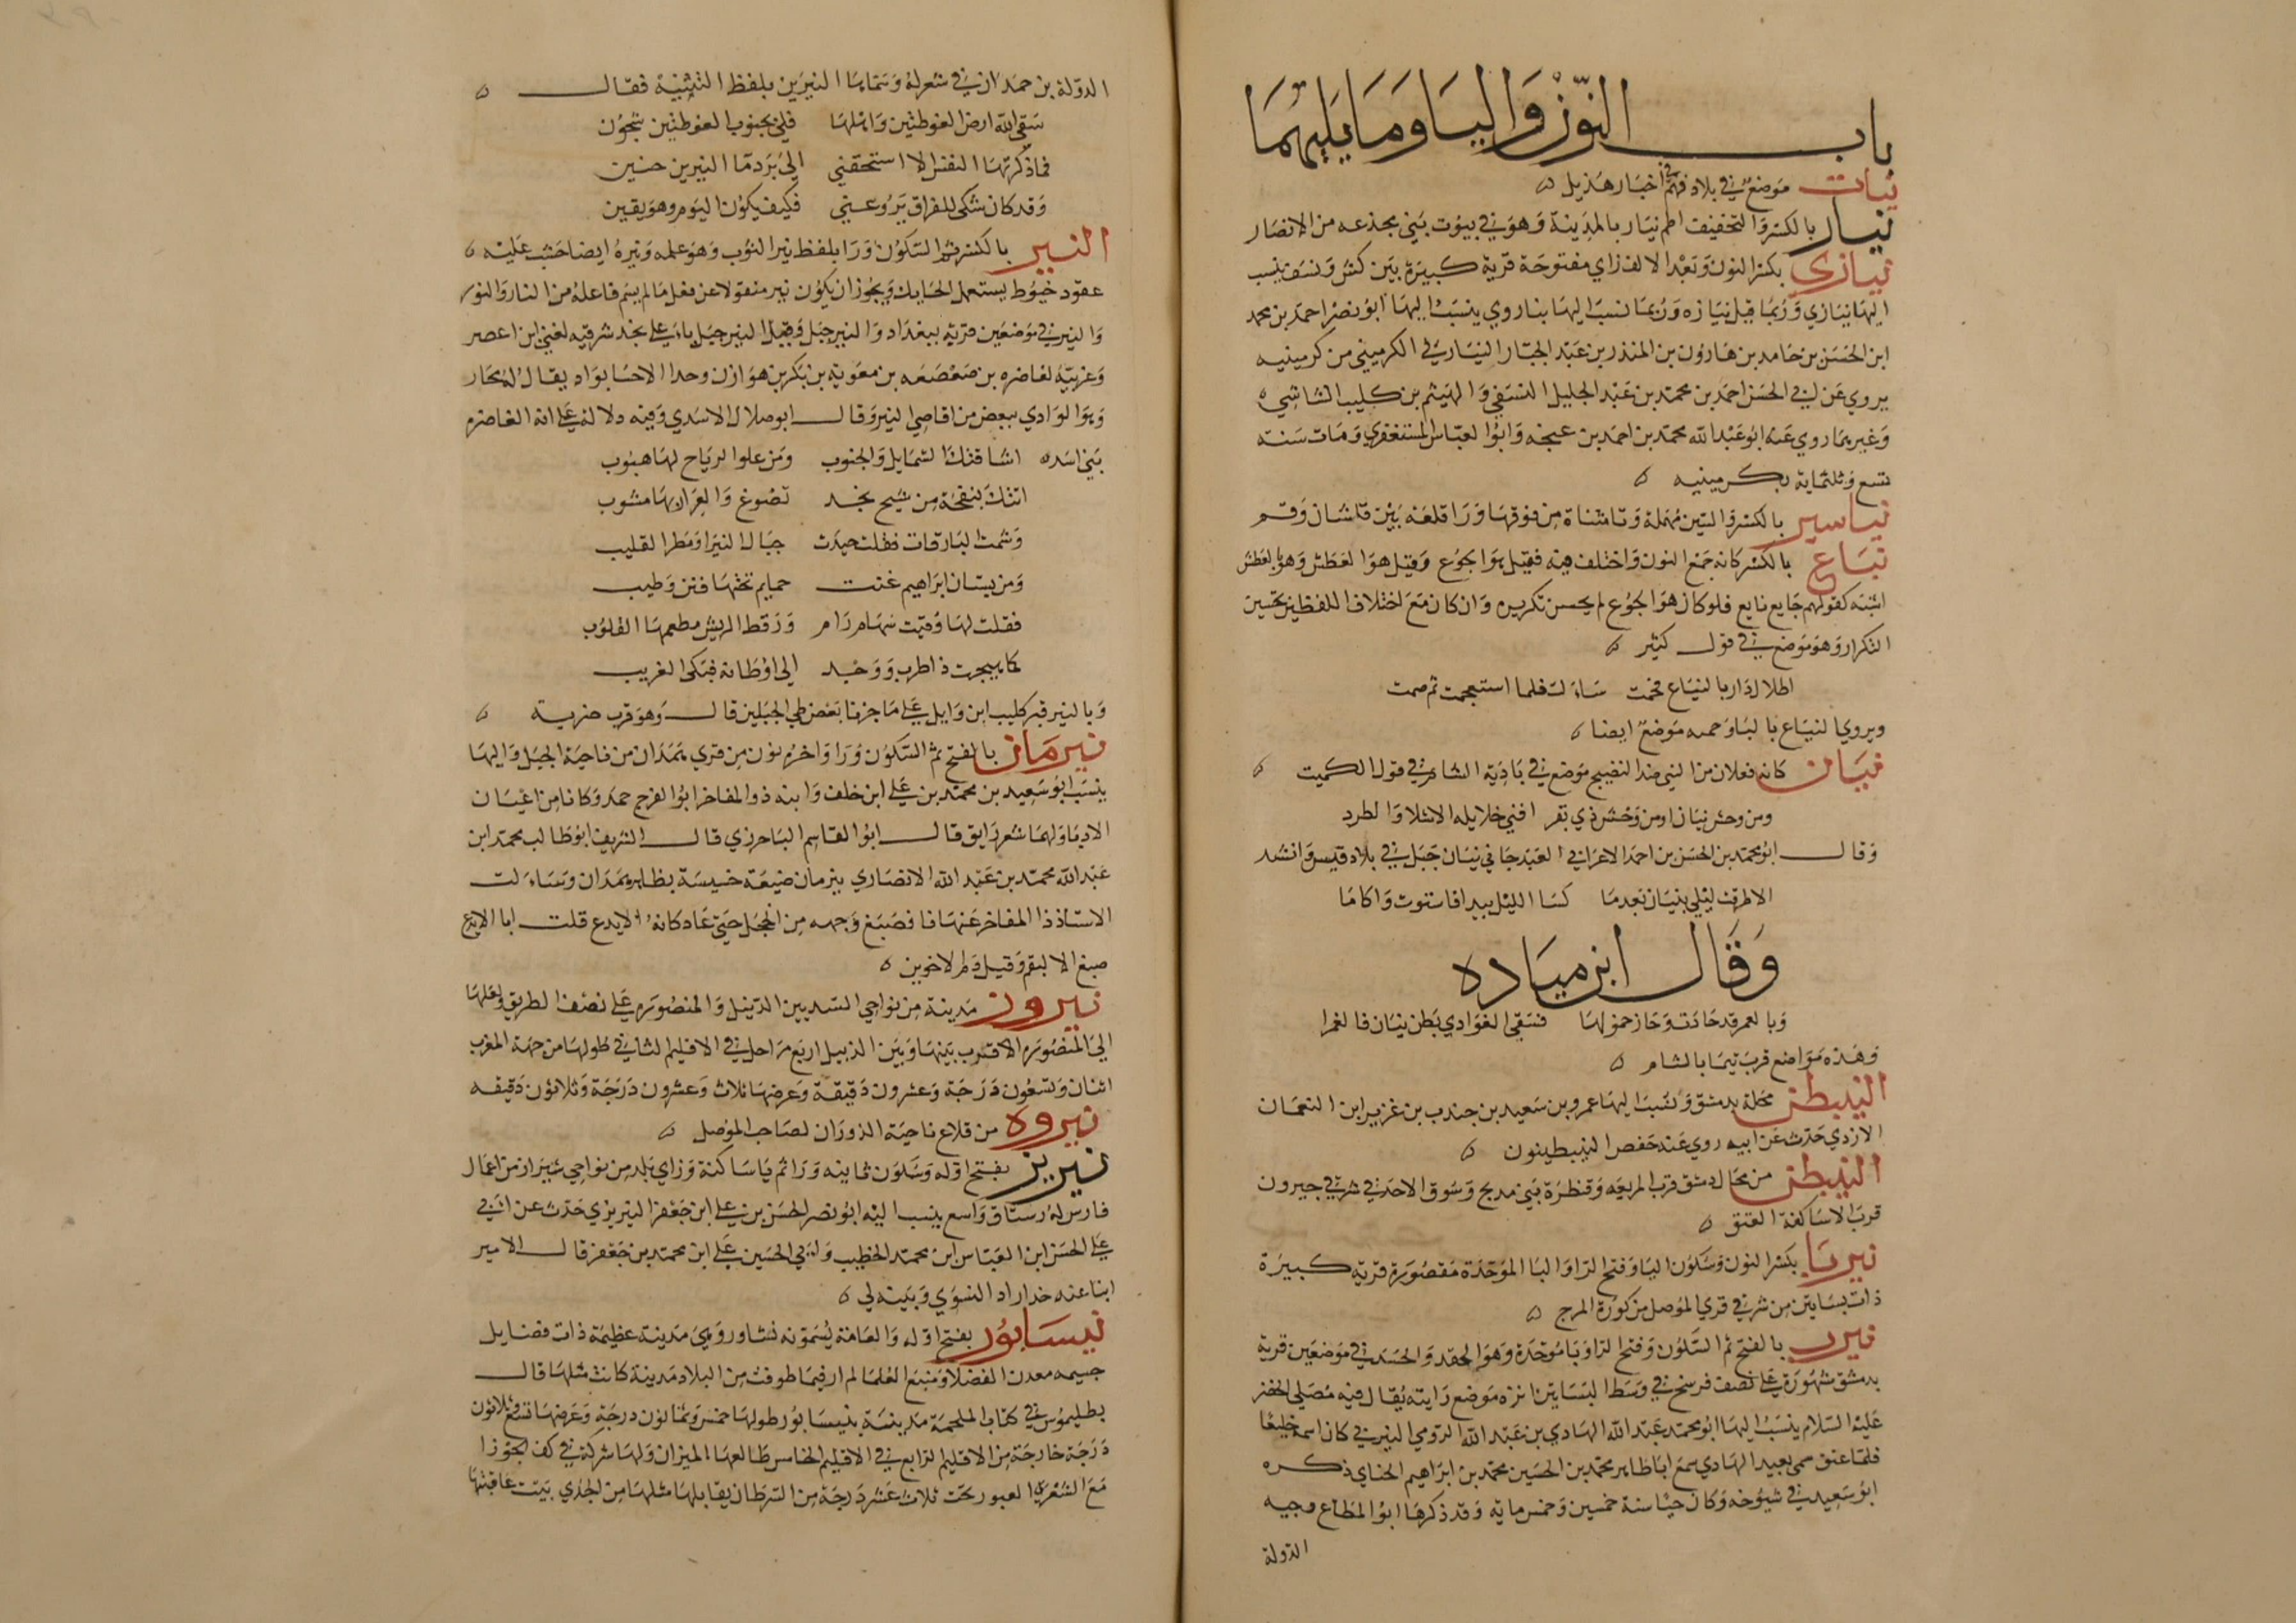 باب النون واليا وما يليهما
نيات موضع في بلاد فهم في اخبار هذيل
نيار بالكسر والتخفيف اطم نيار بالمدينة وهو في بيوت بني مجدعه من الانصار
نيازى بكسر النون وبعد الالف زاي مفتوحة قرية كبيرة بين كش ونسف ينسب
اليها نيازي وربما قيل نيازه وربما نسب اليها ينسب اليها ابو نصر احمد بن محمد
ابن الحسن بن حامد بن هارون بن المنذر بن عبد الجبار النيازكي الكرميني من كرمينيه
يروي عن ابي الحسن احمد بن محمد بن عبد الجليل النسفي والهيثم بن كليب الشاشي
وغيرهما روي عنه ابو عبد الله محمد بن احمد بن وابو العباس المستغفري ومات سنة
تسع وثلثماية بكرمينيه
نياستر بالكسر والسين مهملة وتا مثناة من فوقها ورا قلعة بين قاشان وقم
نياع بالكسر كانه جمع النون واختلف فيه فقيل هو الجوع وقيل هو العطش وهو بالعطش
اشبه كقولهم جايع نايع فلو كان هو الجوع لم يحسن تكريره وان كان مع اختلاف اللفظين يحسن
التكرار وهو موضع في قول كثير
اطلال دار بالنياع فحمت سالت فلما استعجمت ثم صمت
ويروي النياع بالبا وحمه موضع ايضا
نيان كانه فعلان من الني ضد النضيج موضع في بادية الشام في قول الكميت
ومن وحش نيان او من وحش ذي بقر افني خلايله الاشلا والطرد
وقال ابو محمد بن الحسن بن احمد الاعرابي الغندجاني نيان جبل في بلاد قيس وانشد
الا طرقت ليلي بنيان بعدما كسا الليل بيدا فاستوت واكاما
وقال ابن ميادة
وبالغمر قد جازت وجاز حمولها فسقي الغوادي بطن نيان فالغمرا
وهذه مواضع قرب تيما بالشام
النيبطن محلة بدمشق ونسب اليها عمرو بن سعيد بن جندب بن عزيز ابن النعمان
الازدي حدث عن ابيه روي عنه حفص النيبطينون
النيبطن من محال دمشق قرب المربعه وقنطرة بني مدلج وسوق الاحد في شرقي جيرون
قرب الاساكفة العتق
نيربا بكسر النون وسكون اليا وفتح الرا والبا الموحدة مقصورة قرية كبيرة
ذات بساتين من شرقي قري الموصل من كورة المرج
نيرب بالفتح ثم السكون وفتح الرا وبا موحدة وهو الحقد والحسد في موضعين قرية
بدمشق مشهورة علي نصف فرسخ في وسط البساتين انزه موضع رايته يقال فيه مصلي الخضر
عليه السلام ينسب اليها ابو محمد عبد الله الهادي بن عبد الله الرومي النيربي كان اسمه خليعا
فلما عتق سمي بعبد الهادي سمع ابا طاهر محمد بن الحسين محمد بن ابراهيم الحناي ذكره
ابو سعيد في شيوخه وكان حيا سنة خمسين وخمس ماية وقد ذكرها ابو المطاع وجيه
الدولة
الدولة بن حمدان في شعر له وسماها النيربين بلفظ التثنية فقال
سقي الله ارض الغوطتين واهلها فلي بجنوب الغوطتين شجون
فما ذكرتها النفس الا استخفني الي برد ما النيربين حنين
وقد كان شكي للفراق يروعني فكيف يكون اليوم وهو يقين
النير بالكسر ثم السكون ورا بلفظ نير الثوب وهو علمه ونيره ايضا خشب عليه
عقود خيوط يستعمله الحايك ويجوز ان يكون نير منقولا عن فعل ما لم يسم فاعله من النار والنور
والنير في موضعين قرية ببغداد والنير جبل وقيل النير جبل باعلي نجد شرقيه لغني ابن اعصر
وغربيه لغاضره بن صعصعه بن معوية بن بكر بن هوازن وحدا الاحسا بواد يقال له بحار
وهو الوادي ببعض من اقاصي النير وقال ابو هلال الاسدي وفيه دلالة علي انه الغاضره
بني اسد اشاقتك الشمايل والجنوب ومن علوا لرياح لها هبوب
اتتك بنفحة من شيح نجد تضوع والعرار بها مشوب
وشمت البارقات فقلت جيدت جبال النير او مطر القليب
ومن بستان ابراهيم غنت حمايم تحتها فنن رطيب
فقلت لها وقيت سهام رام ورقط الريش مطعمها القلوب
كما هيجت ذا طرب ووجد الي اوطانه فبكي الغريب
وبالنير قبر كليب ابن وايل علي ما خبرنا بعض طي الجبلين قال وهو قرب ضرية
نيرمان بالفتح ثم السكون ورا واخره نون من قري همدان من ناحية الجبل واليها
ينسب ابو سعيد بن محمد بن علي ابن خلف وابنه ذو المفاخر ابو الفرج حمد وكانا من اعيان
الادبا ولهما شعر رايق قال ابو القاسم الباخرزي قال الشريف ابو طالب محمد ابن
عبد الله محمد بن عبد الله الانصاري نيرمان ضيعة خسيسة بظاهر همدان وسالت
الاستاذ ذا المفاخر عنها فا فصبغ وجهه من الخجل حتي عاد كانه الايدع قلت ابا الايدع
صبغ الا لبقم وقيل دم الاخوين
نيرون مدينة من نواحي السند بين الديبل والمنصوره علي نصف الطريق ولعلها
الي المنصوره الاقرب بينها وبين الديبل اربع مراحل في الاقليم الثاني طولها من جهة المغرب
اثنان وتسعون درجة وعشرون دقيقة وعرضها ثلاث وعشرون درجة وثلاثون دقيقه
نيروه من قلاع ناحية الزوزان لصاحب الموصل
نيريز بفتح اوله وسكون ثانيه ورا ثم يا ساكنة وزاي بلد من نواحي شيراز من اعمال
فارس له رستاق واسع ينسب اليه ابو نصر الحسن بن علي ابن جعفر النيريزي حدث عن ابي
علي الحسن ابن العباس ابن محمد الخطيب وابي الحسين علي ابن محمد بن جعفر قال الامير
ابنا عنه خداراد النسوي وبيته لي
نيسابور بفتح اوله والعامة يسمونه نشاور وهي مدينة عظيمة ذات فضايل
جسيمه معدن الفضلا ومنبع العلما لم ار فيما طوفت من البلاد مدينة كانت مثلها قال
بطليموس في كتاب الملحمة مدينة نيسابور طولها خمس وثمانون درجة وعرضها تسع وثلاثون
درجة خارجة من الاقليم الرابع في الاقليم الخامس طالعها الميزان ولها شركة في كف الجوزا
مع الشعري العبور تحت ثلاث عشر درجة من السرطان يقابلها مثلها من الجدي بيت عاقبتها